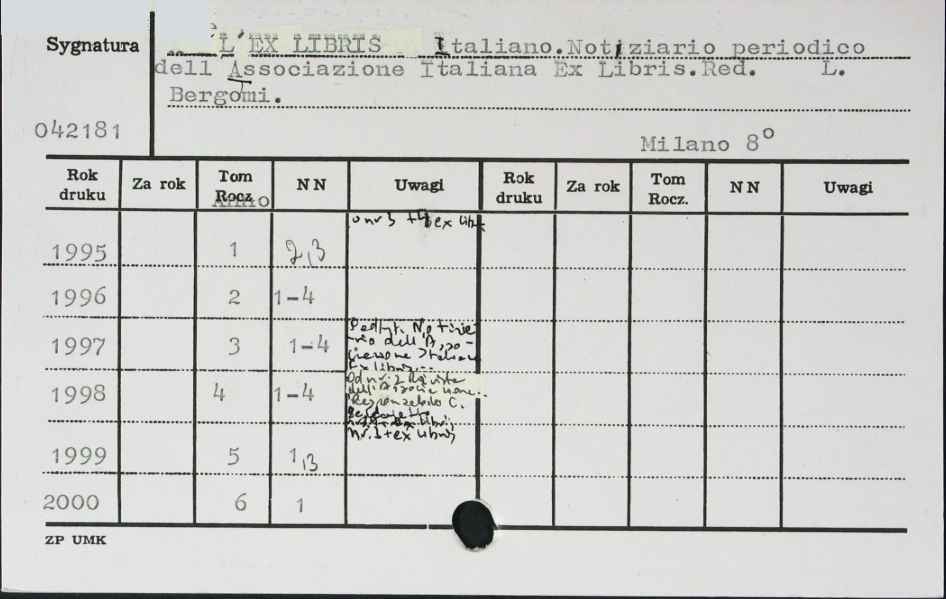 Sygnatura
L'EX LIBRIS Italiano. Notiziario periodico
dell Associazione Italiana Ex Libris. Red. L.
Bergomi.
042181
Milano 8°
Rok druku Za rok Tom Rocz. NN Uwagi Rok druku Za rok Tom Rocz. NN Uwagi
Anno
nr 3 + ex libr
1995 1 2,3
1996 2 1-4
1997 3 1-4
dell'
Italiana
Ex libris
1998 4 1-4
Od nr. 2
C.
nr. 3 + ex libris
1999 5 1,3
2000 6 1
ZP UMK